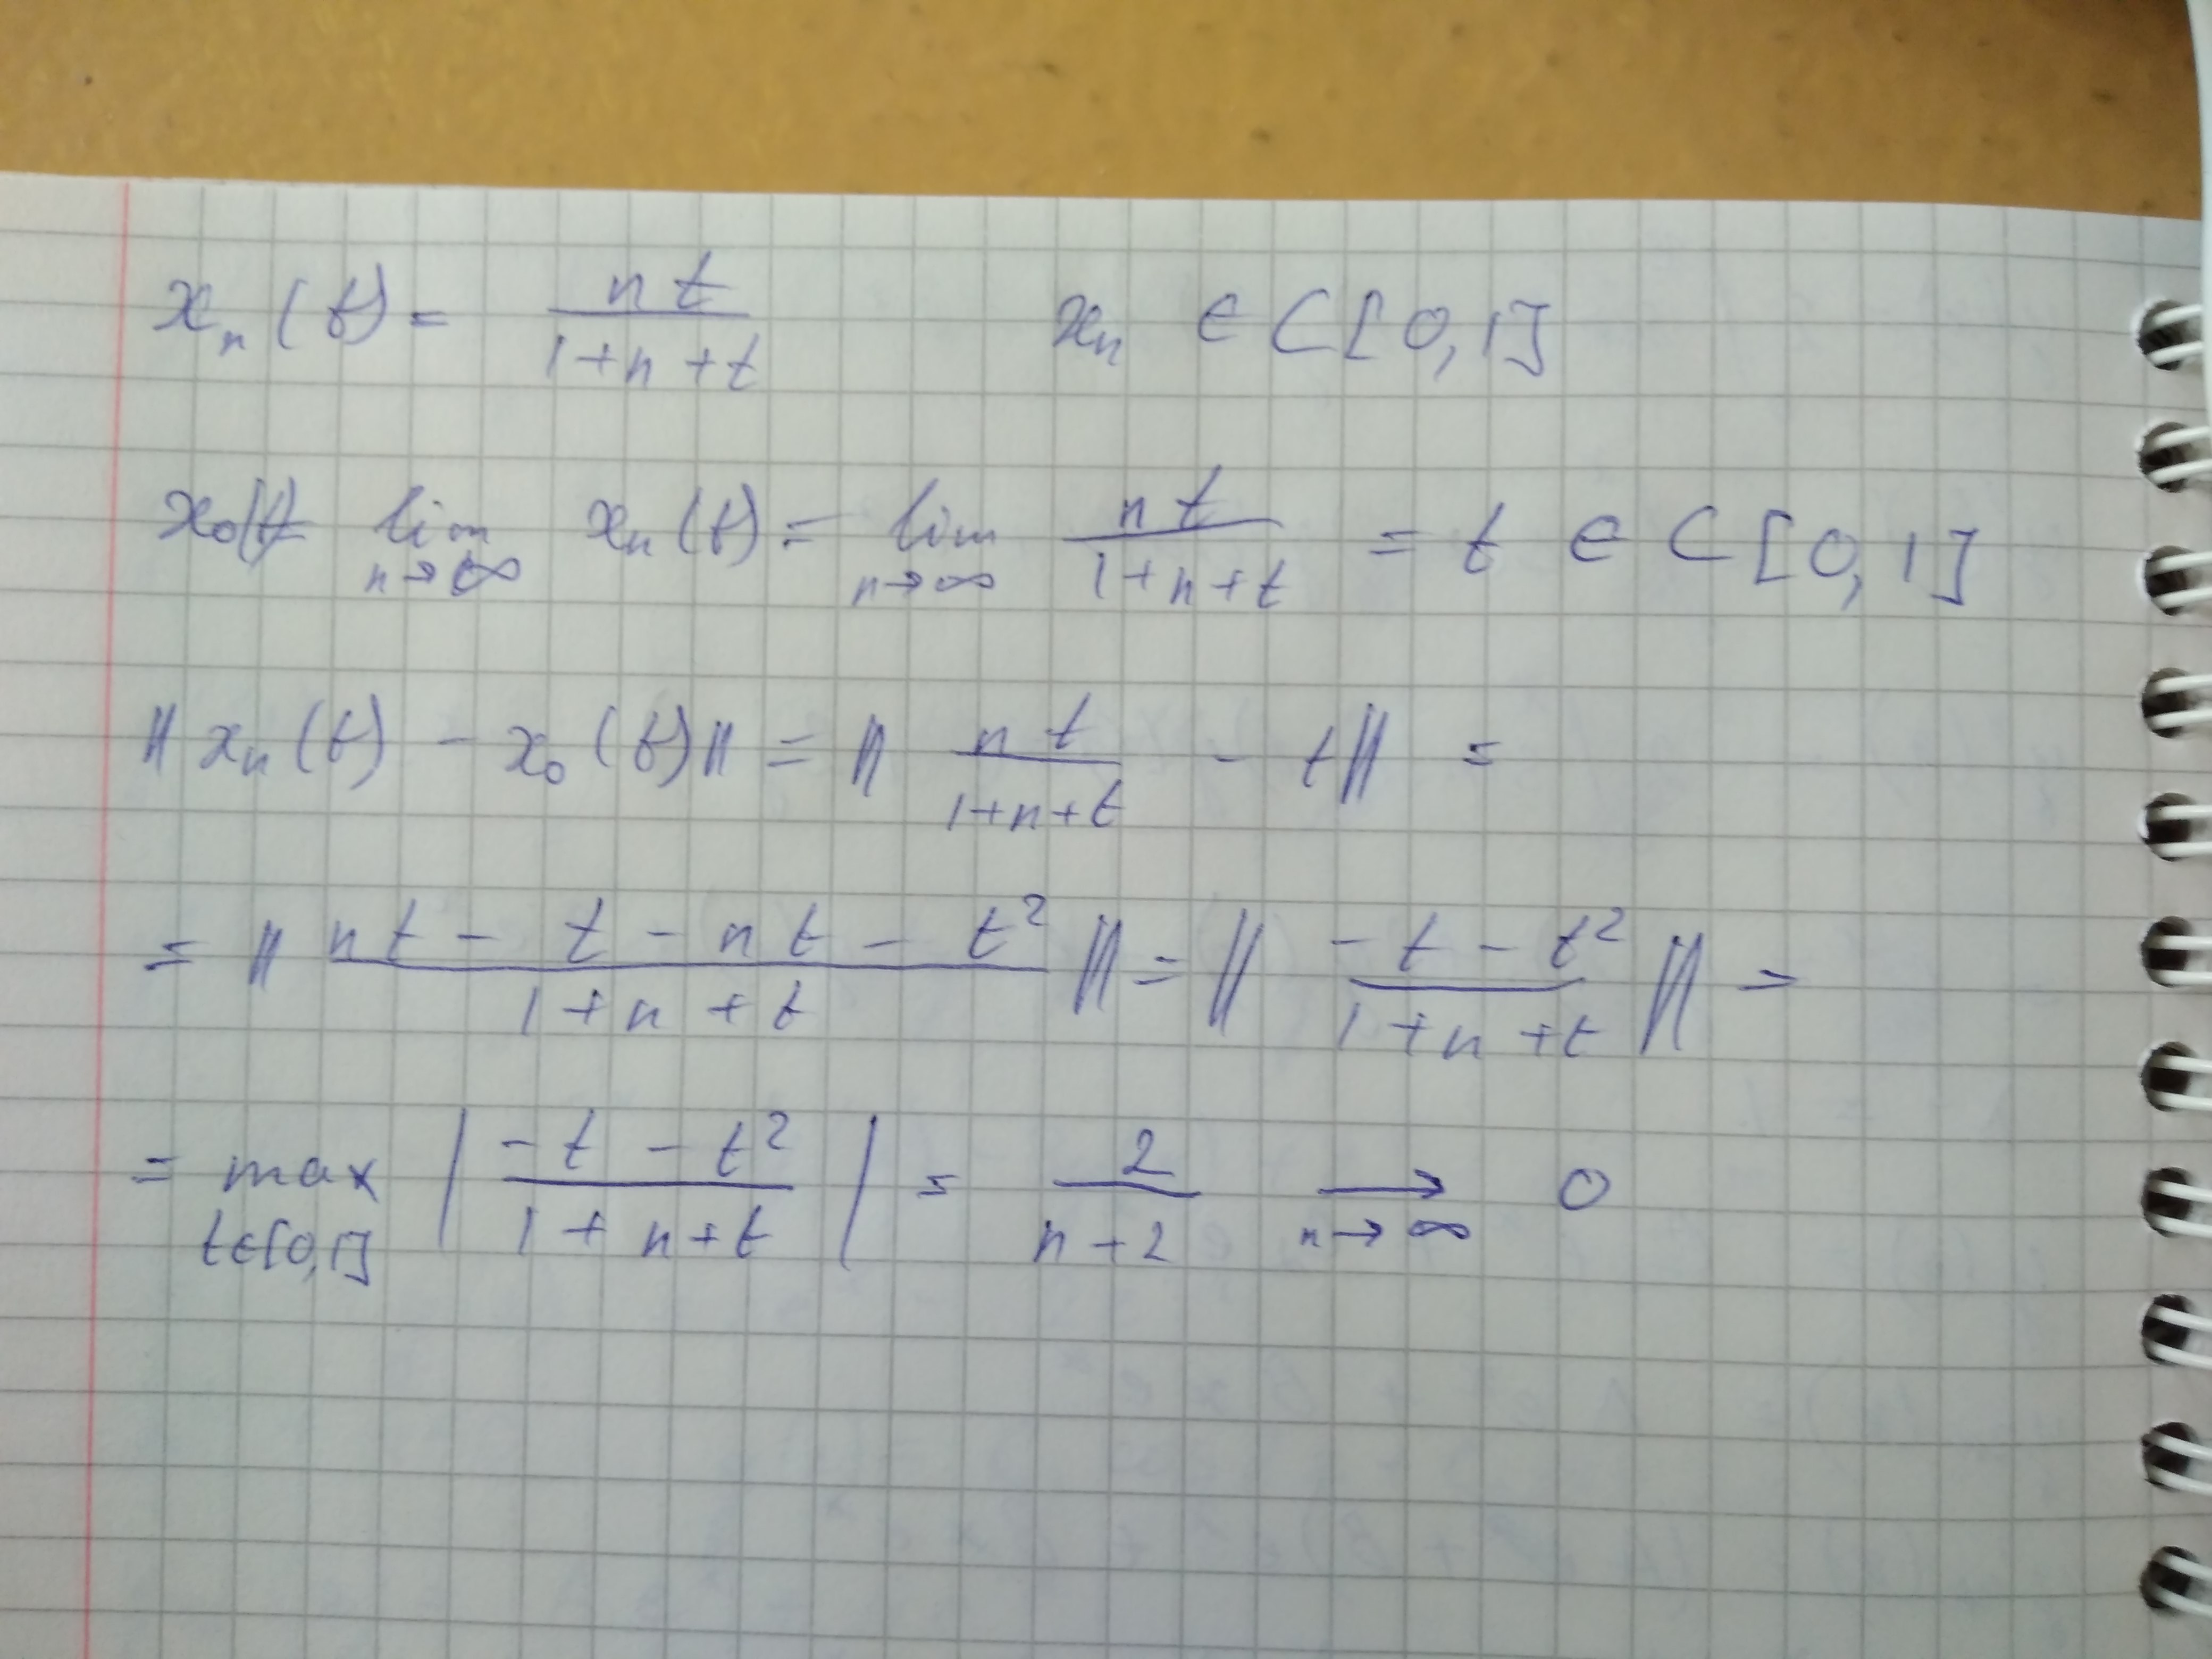 xₙ(t) = nt/(1+n+t)   xₙ ∈ C[0,1]
x₀(t) = lim_{n→∞} xₙ(t) = lim_{n→∞} nt/(1+n+t) = t ∈ C[0,1]
‖xₙ(t) - x₀(t)‖ = ‖nt/(1+n+t) - t‖ =
= ‖(nt - t - nt - t²)/(1+n+t)‖ = ‖(-t - t²)/(1+n+t)‖ =
= max_{t∈[0,1]} |(-t - t²)/(1+n+t)| = 2/(n+2) →_{n→∞} 0